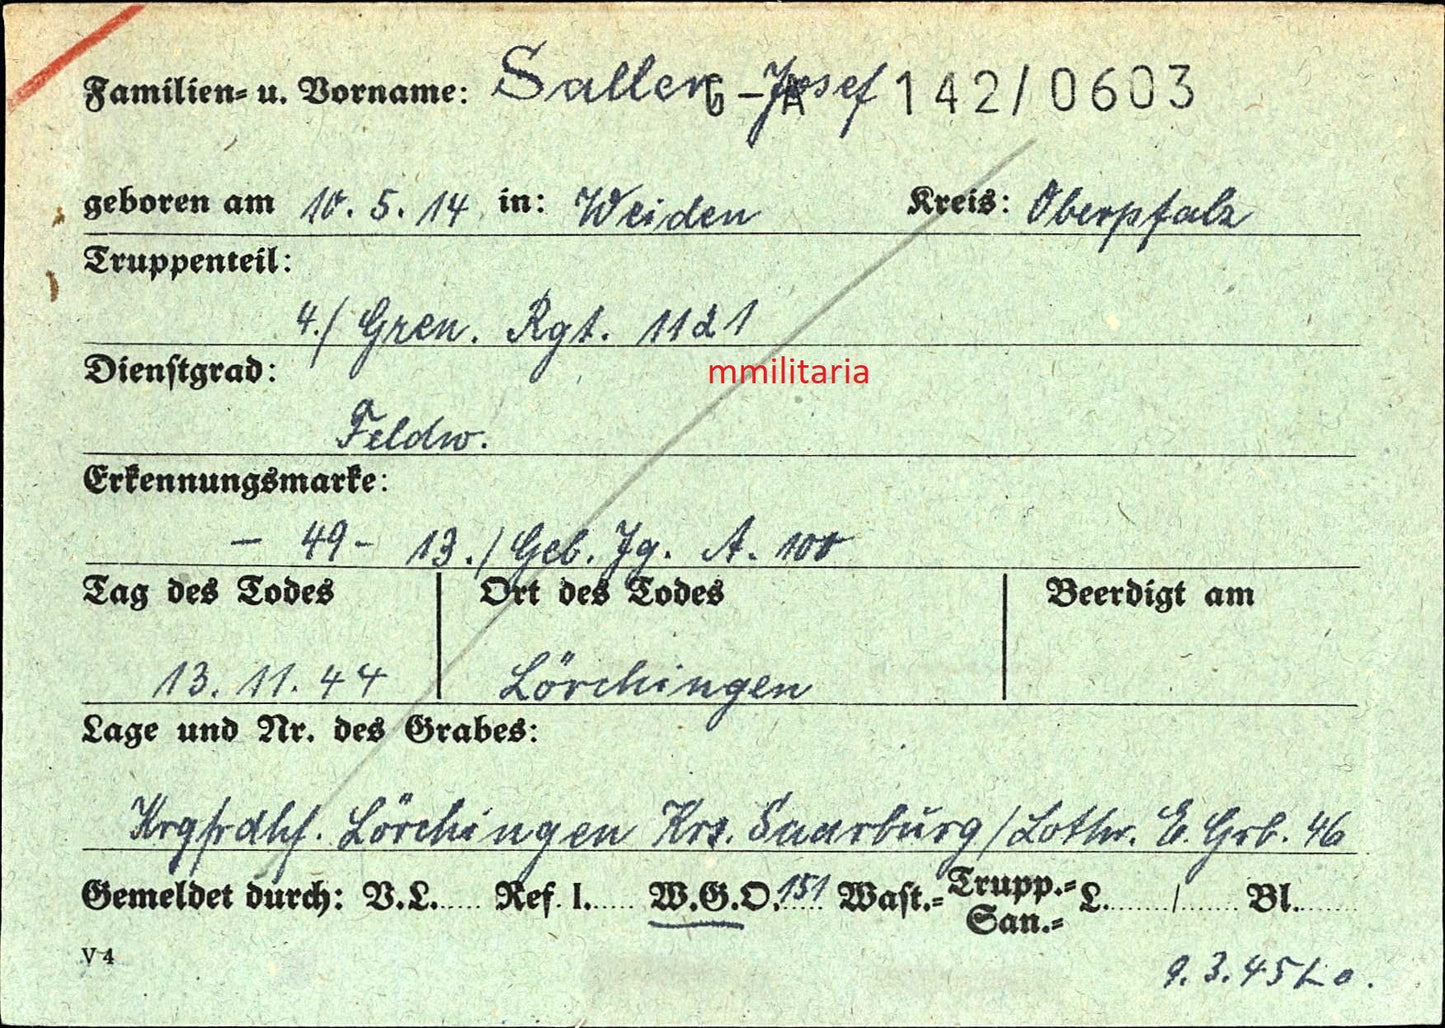 Familien- u. Vorname: Saller Josef G-A 142/0603
geboren am 10. 5. 14 in: Weiden Kreis: Oberpfalz
Truppenteil:
4./ Gren. Rgt. 1121
mmilitaria
Dienstgrad:
Feldw.
Erkennungsmarke:
- 49 - 13./ Geb. Jg. A. 100
Tag des Todes Ort des Todes Beerdigt am
13. 11. 44 Lörchingen
Lage und Nr. des Grabes:
Krgfrdhf. Lörchingen Krs. Saarburg/Lothr. E. Grb. 46
Gemeldet durch: V.L...... Ref. I...... W.G.O. 151 Wast.= Trupp.= L......../........ Bl.........
San.=
V 4
9. 3. 45 Lo.